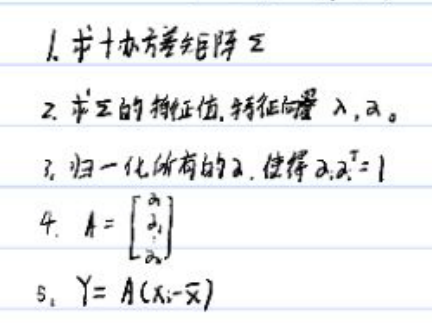 1. 求协方差矩阵 Σ
2. 求Σ的特征值,特征向量 λ, a。
3. 归一化所有的a,使得 aᵢaᵢᵀ=1
4. A = [a₁ a₂ ⋮ aₙ]
5. Y= A(xᵢ-x̄)